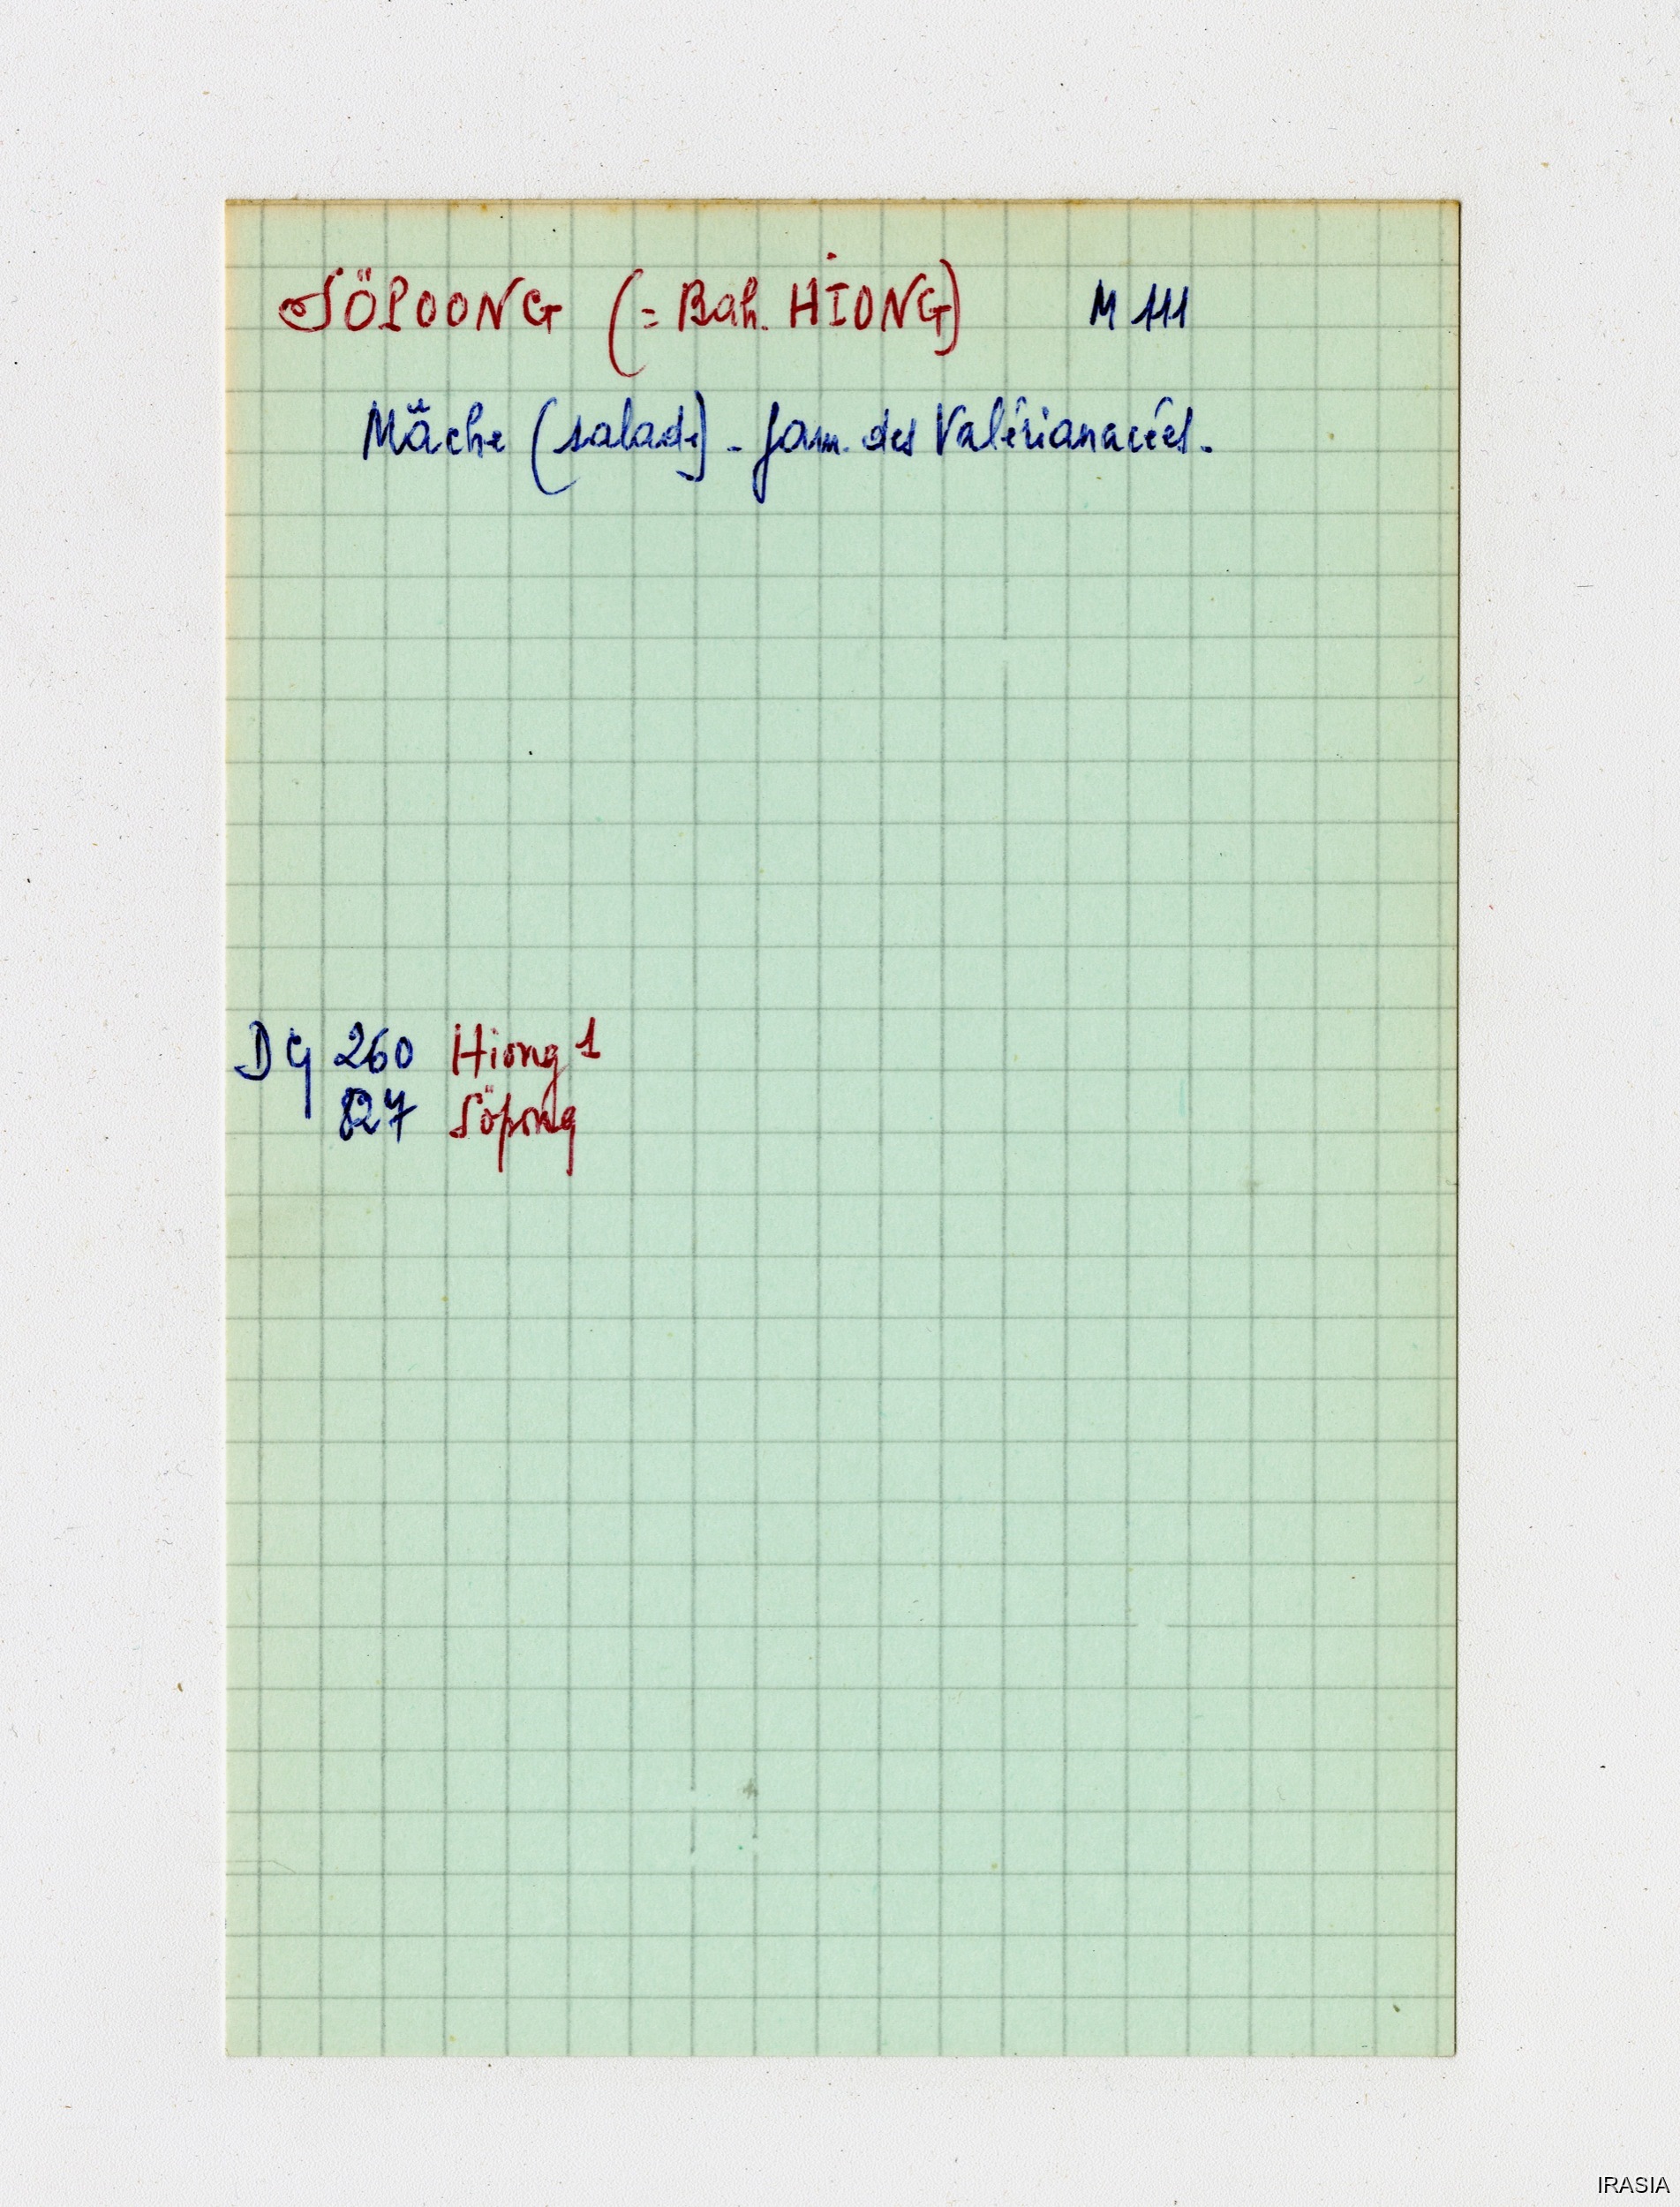 SÖPOONG (= Bah. HIONG) M 111
Mäche (salade) - fam. des Valérianacées.
DG 260 Hiong 1
827 Söpong
IRASIA